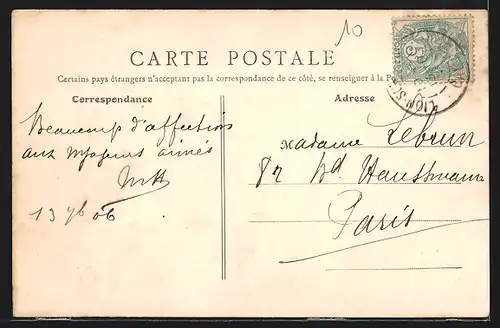 10
CARTE POSTALE
Certains pays étrangers n'acceptant pas la correspondance de ce côté, se renseigner à la Po
Correspondance
Adresse
Beaucoup d'affections
aux
aimés
13 7b 06
Madame Lebrun
82 bd Haussmann
Paris
LION-S